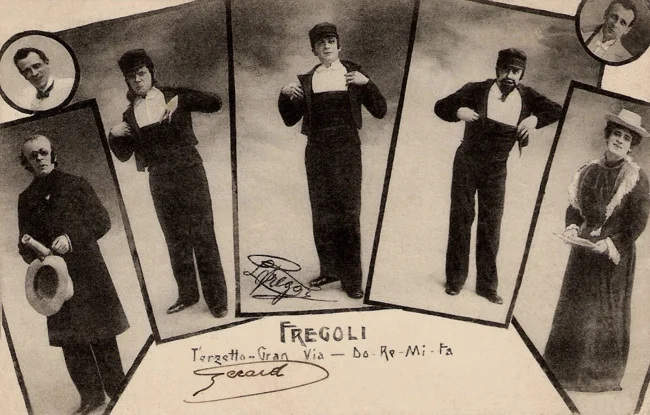 Fregoli
FREGOLI
Terzetto-Gran Via — Do-Re-Mi-Fa